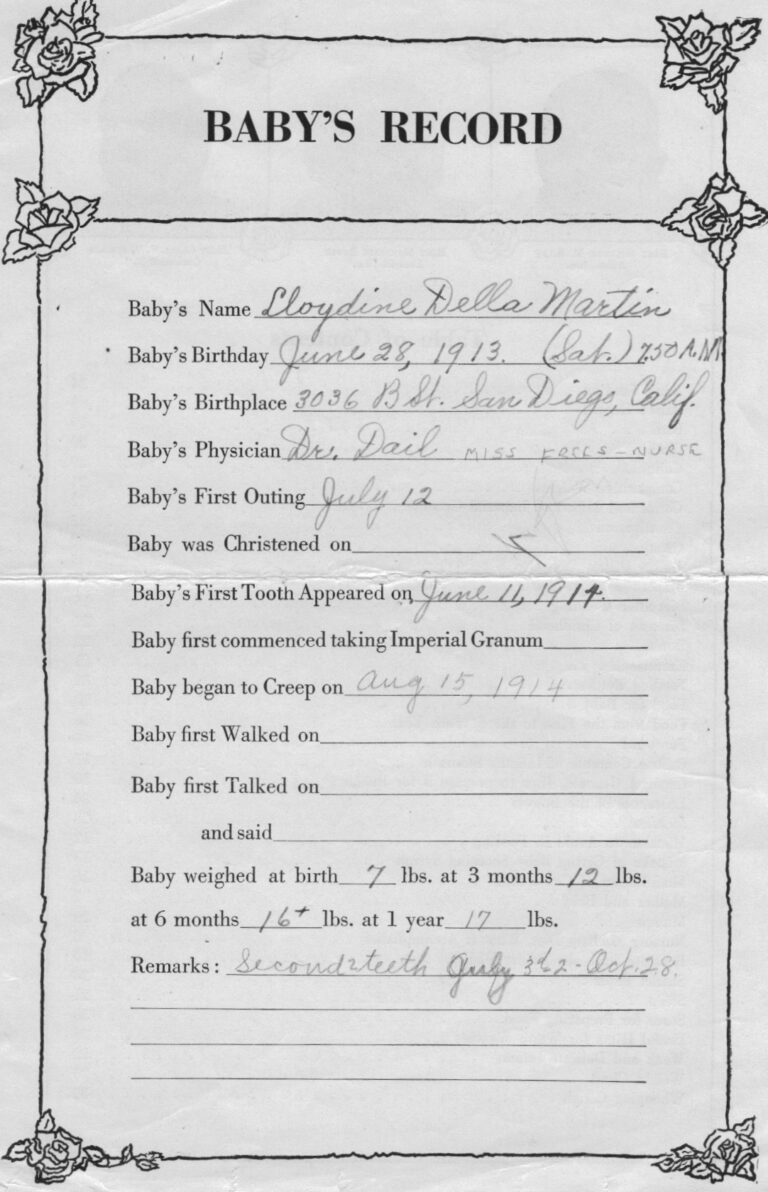 BABY'S RECORD
Baby's Name Lloydine Della Martin
Baby's Birthday June 28, 1913. (Sat.) 7.50 A.M.
Baby's Birthplace 3036 B St. San Diego, Calif.
Baby's Physician Dr. Dail MISS FREES - NURSE
Baby's First Outing July 12
Baby was Christened on
Baby's First Tooth Appeared on June 11, 1914.
Baby first commenced taking Imperial Granum
Baby began to Creep on Aug 15, 1914
Baby first Walked on
Baby first Talked on
and said
Baby weighed at birth 7 lbs. at 3 months 12 lbs.
at 6 months 16+ lbs. at 1 year 17 lbs.
Remarks: Second 2 teeth July 3d 2 - Oct. 28.